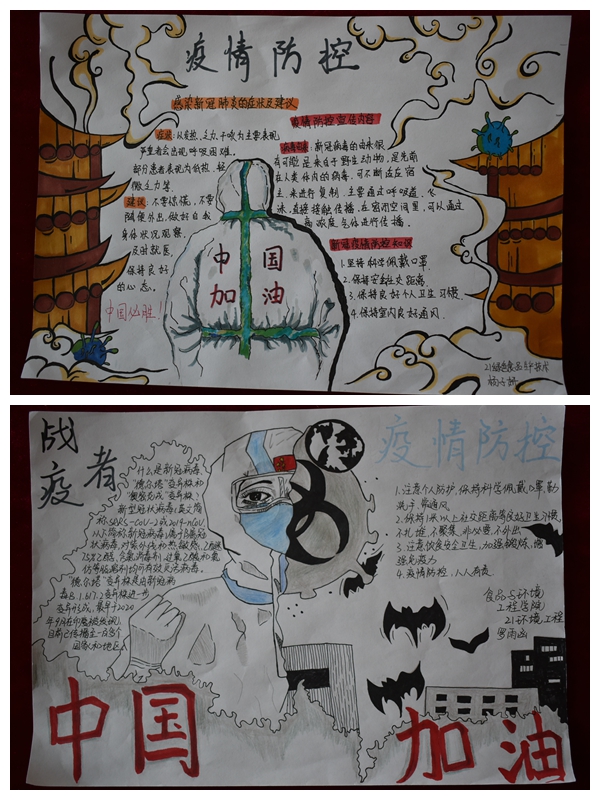 疫情防控
感染新冠肺炎的症状及建议
症状:以发热、乏力、干咳为主要表现,
严重者会出现呼吸困难。
部分患者表现为低热、轻
微乏力等.
建议:不要惊慌,不要
随便外出,做好自我
身体状况观察,
及时就医,
保持良好
的心态。
中国必胜!
疫情防控宣传内容
新冠病毒的由来很
有可能是来自于野生动物,是先前
在人类体内的病毒.可不断适应宿
主.来进行复制.主要通过呼吸道、飞
沫、直接接触传播.在密闭空间里,可以通过
高浓度气体进行传播.
新冠疫情防控知识
1.坚持科学佩戴口罩.
2.保持安全社交距离.
3.保持良好个人卫生习惯.
4.保持室内良好通风.
中国
加油
战
疫者
疫情防控
什么是新冠病毒
“德尔塔”变异株和
“奥密克戎”变异株?
新型冠状病毒:英文简
称SARS-CoV-2或2019-nCoV,
“德尔塔”变异株是由新冠病
毒B.1.617.2变异株进一步
变异形成,最早于2020
年
目前已传播至一百多个
国家和地区
1.注意个人防护,保持科学佩戴口罩,勤
洗手,常通风.
2.保持1米以上社交距离,养成好卫生习惯,
不扎堆,不聚集,非必要,不外出.
3.注意饮食安全卫生,加强锻炼,增
强免疫力.
4.疫情防控,人人有责
食品与环境
工程学院
21环境工程
罗雨函
中国
加油